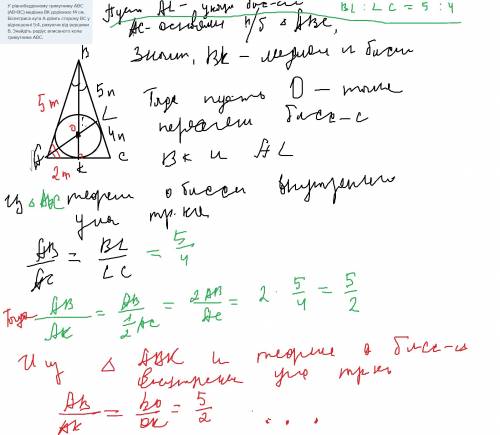 У рівнобедреному трикутнику ABC
(AB=BC) медіана BK дорівнює 14 см.
Бісектриса кута A ділить сторону BC у
відношенні 5:4, рахуючи від вершини
B. Знайдіть радіус вписаного кола
трикутника ABC.
Пусть AL -
BL : LC = 5 : 4
AC - основание р/б △ ABC,
Значит, BK - медиан и бисс
Тогда пусть O - точка
пересеч бисс-с
BK и AL
B
5m
5n
O
L
4n
A
2m
K
C
Из △ABC теорем о биссек внутреннего
угла тр-ка
AB/AC = BL/LC = 5/4
Тогда AB/AK = AB/(1/2 AC) = 2AB/AC = 2 · 5/4 = 5/2
И из △ ABK и теореме о бисс-се
внутрення угла тр-ка
AB/AK = BO/OK = 5/2 . . .